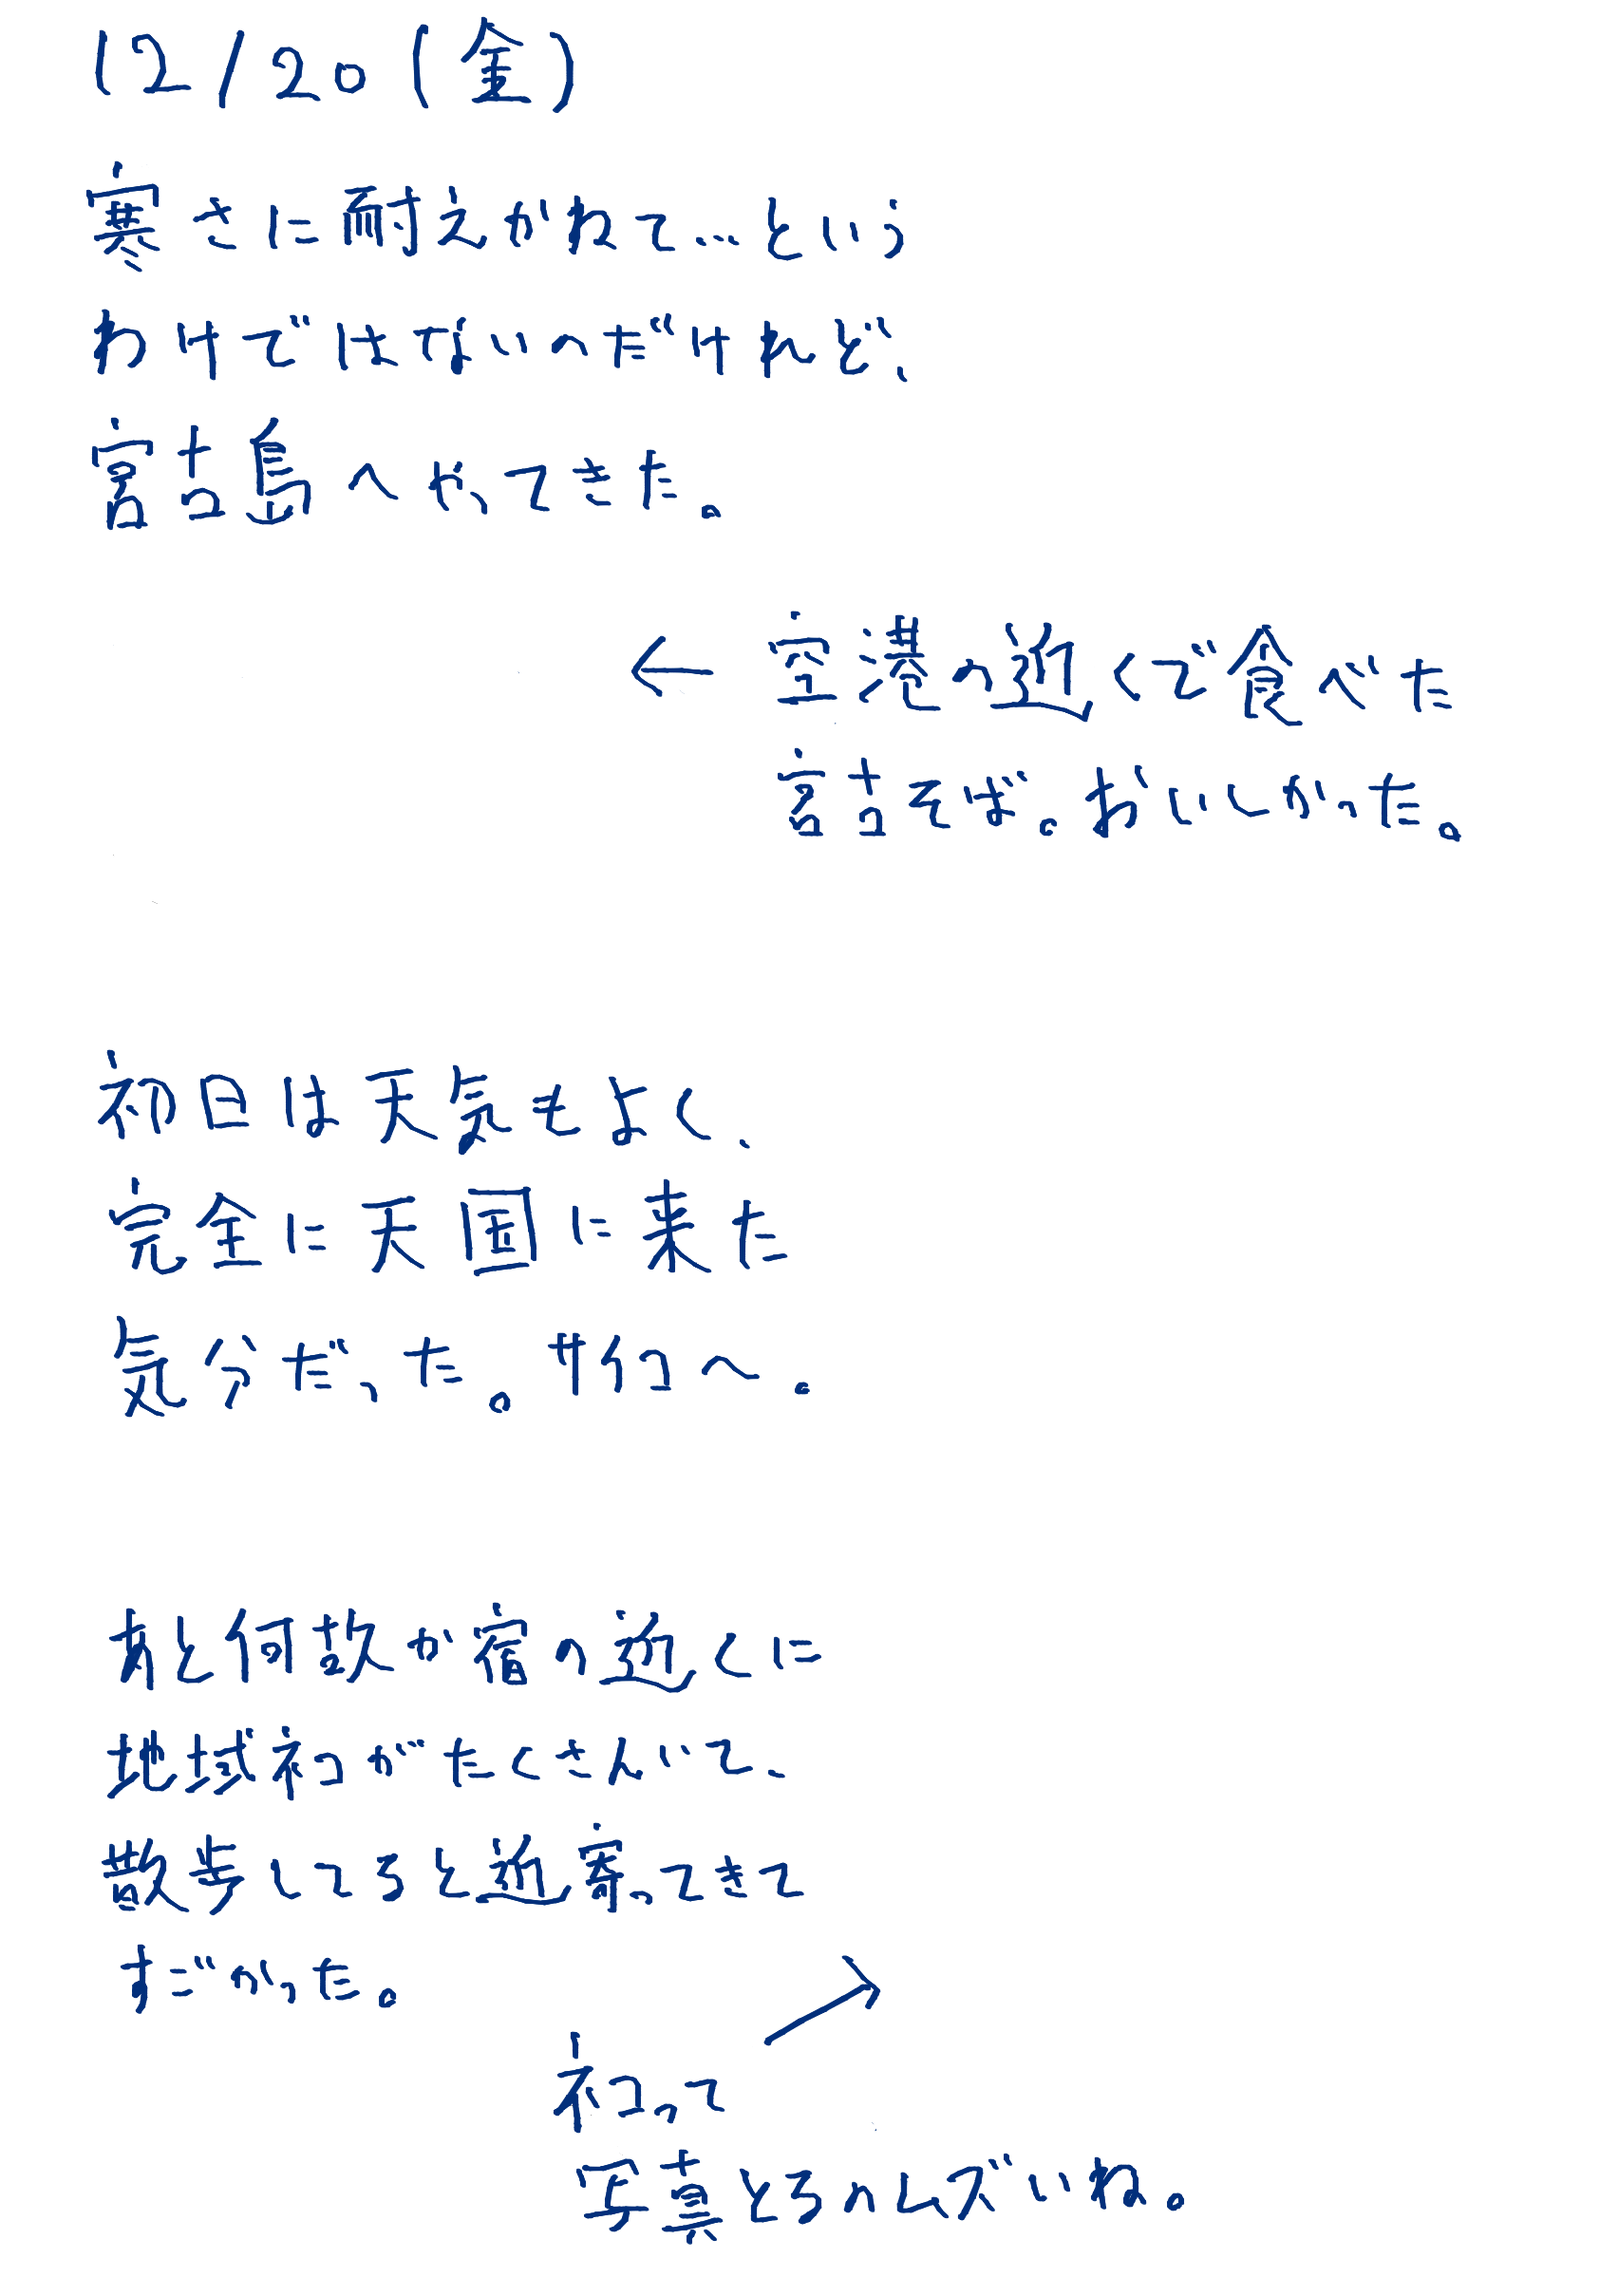 12/20(金)
寒さに耐えかねて…という
わけではないのだけれど、
宮古島へやってきた。
← 空港の近くで食べた
宮古そば。おいしかった。
初日は天気もよく、
完全に天国に来た
気分だった。サイコ〜。
あと何故か宿の近くに
地域ネコがたくさんいて、
散歩してると近寄ってきて
すごかった。
↗
ネコって
写真とるのムズいね。